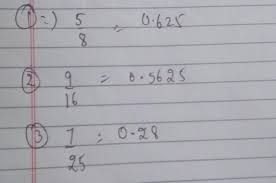 ① =) 5/8 = 0.625
② 9/16 = 0.5625
③ 7/25 = 0.28